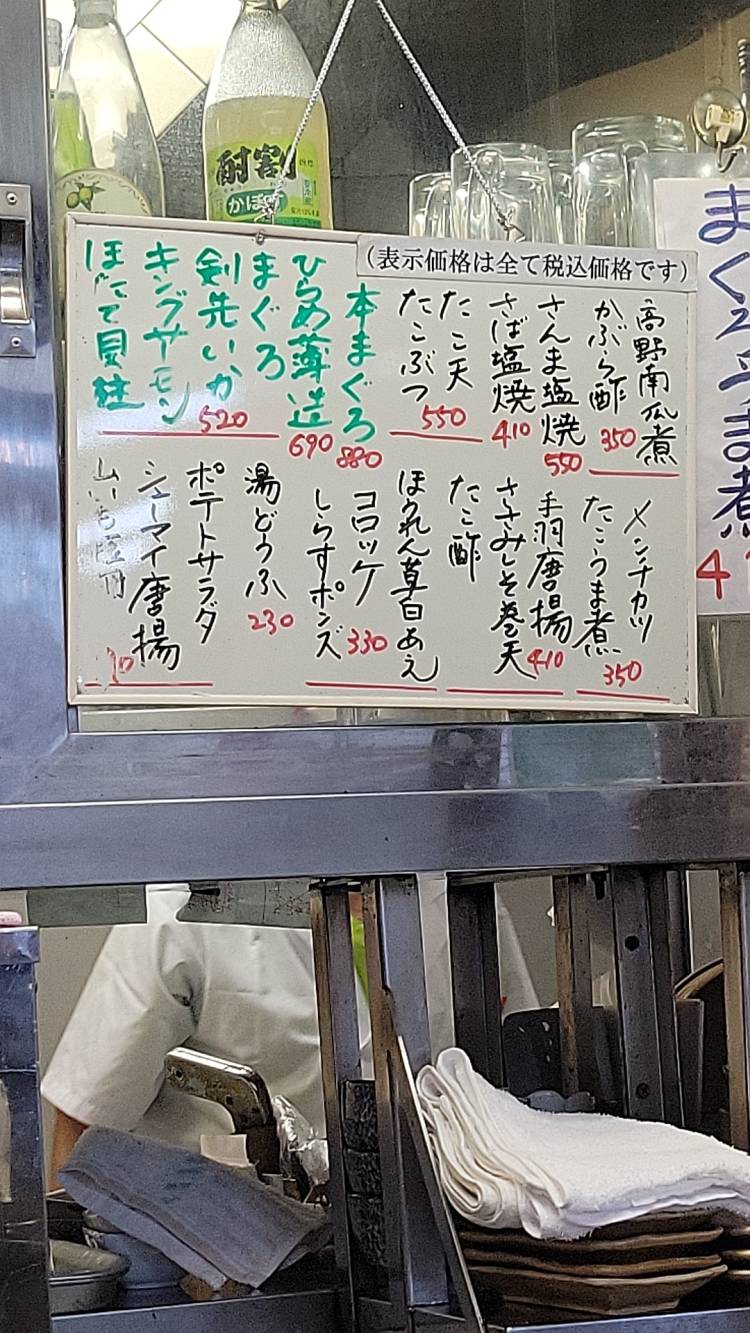 酎割
かぼす
(表示価格は全て税込価格です)
高野南瓜煮
かぶら酢
350
さんま塩焼
550
さば塩焼
410
たこ天
たこぶつ
550
本まぐろ
880
ひらめ薄造
690
まぐろ
剣先いか
キングサーモン
ほたて貝柱
520
メンチカツ
たこうま煮
350
手羽唐揚
410
ささみしそ巻天
たこ酢
ほうれん草白あえ
コロッケ
しらすポンズ
330
湯どうふ
230
ポテトサラダ
シューマイ唐揚
山いも
まぐろうま煮
4